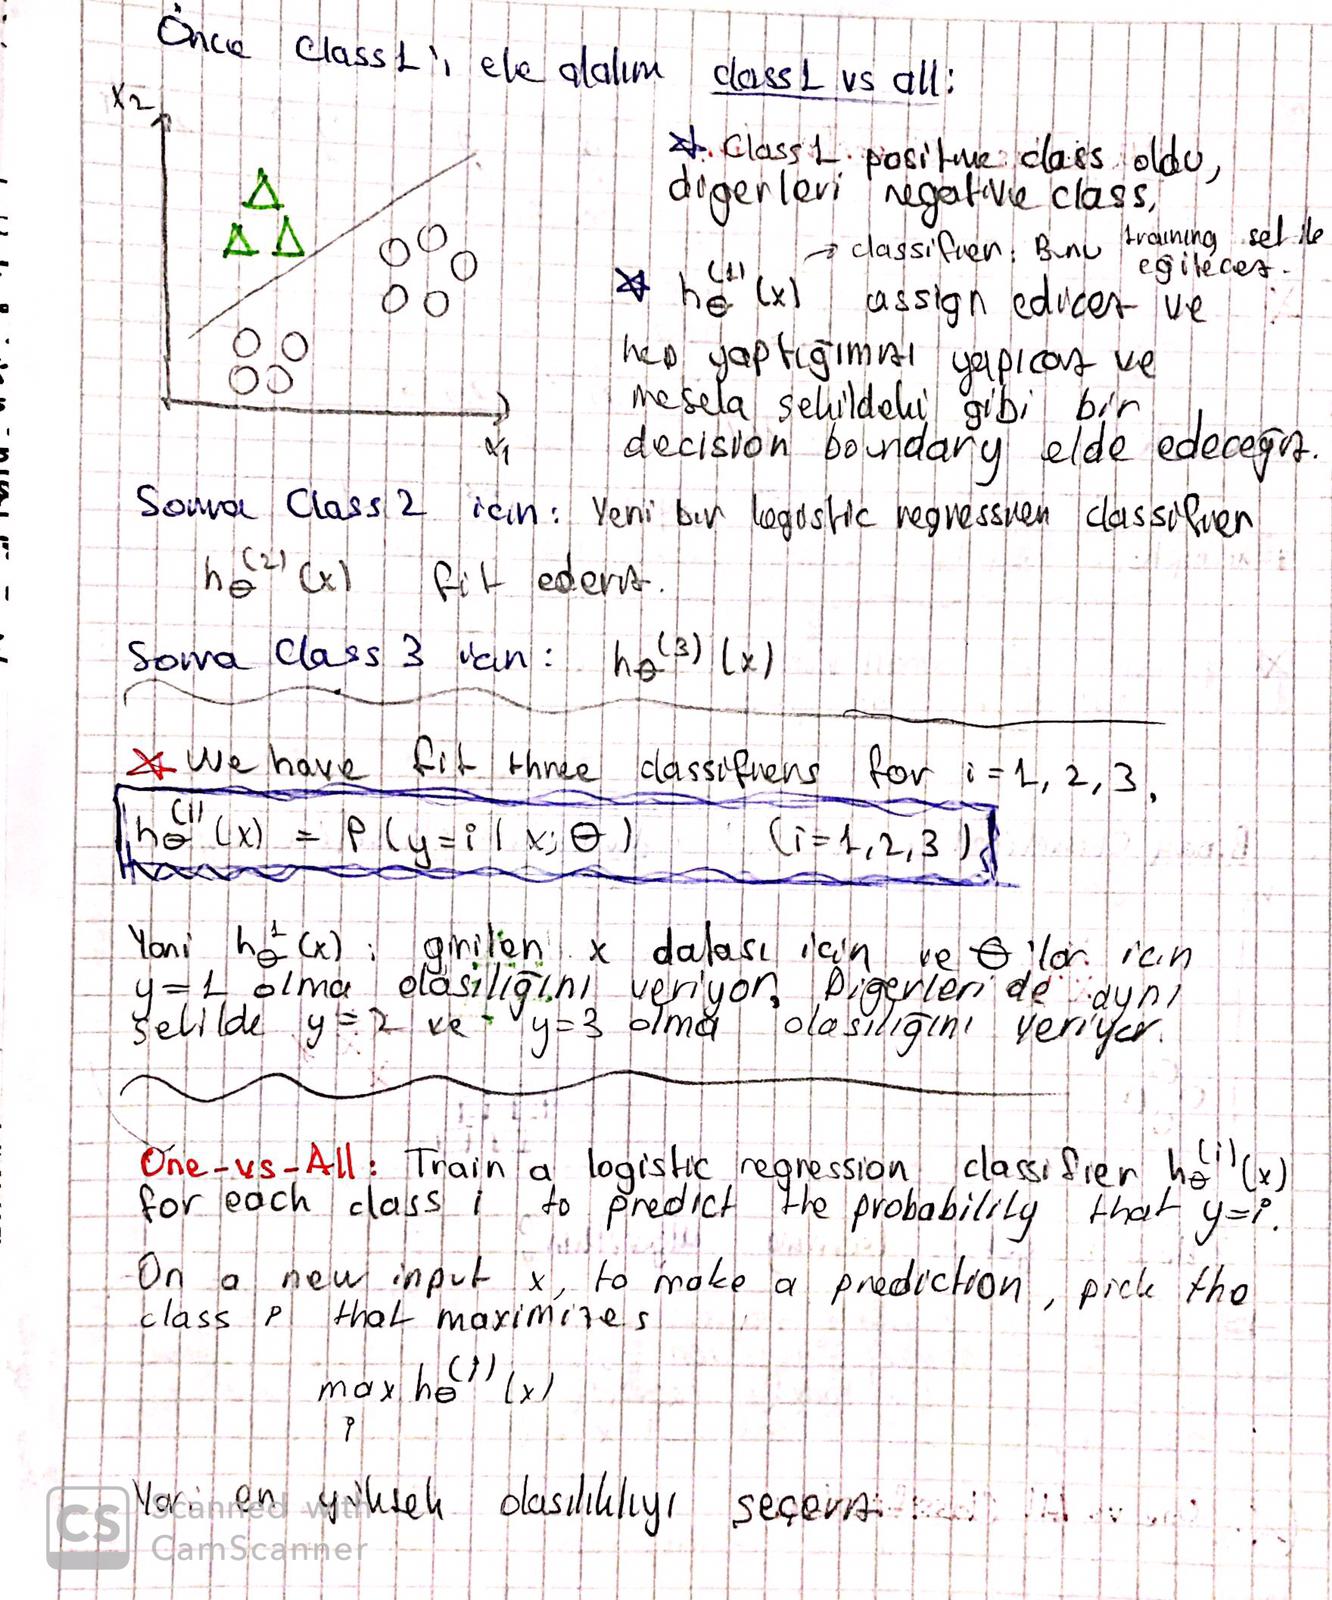 Önce Class1'i ele alalım class1 vs all:
x2
x1
* Class1 positive class oldu,
diğerleri negative class,
→ classifier: Bunu training set ile
eğiteceğiz.
* hθ^(1)(x) assign edicez ve
hep yaptığımızı yapıcaz ve
mesela şekildeki gibi bir
decision boundary elde edeceğiz.
Sonra Class2 için: Yeni bir logistic regression classifier
hθ^(2)(x) fit ederiz.
Sonra Class 3 için: hθ^(3)(x)
* We have fit three classifiers for i=1, 2, 3.
hθ^(i)(x) = P(y=i | x; θ) (i=1,2,3)
Yani hθ^1(x): girilen x datası için ve θ'lar için
y=1 olma olasılığını veriyor, Diğerleri de aynı
şekilde y=2 ve y=3 olma olasılığını veriyor.
One-vs-All: Train a logistic regression classifier hθ^(i)(x)
for each class i to predict the probability that y=i.
On a new input x, to make a prediction, pick the
class i that maximizes
max hθ^(i)(x)
i
Yani en yüksek olasılıklıyı seçeriz.
CS Scanned with
CamScanner